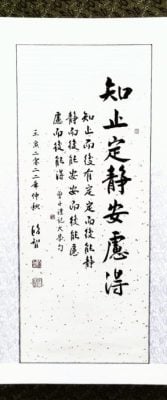 知止定静安慮得
知止而後有定定而後能静
静而後能安安而後能慮
慮而後能得 曾子禮記大學句
壬寅二零二二年仲秋